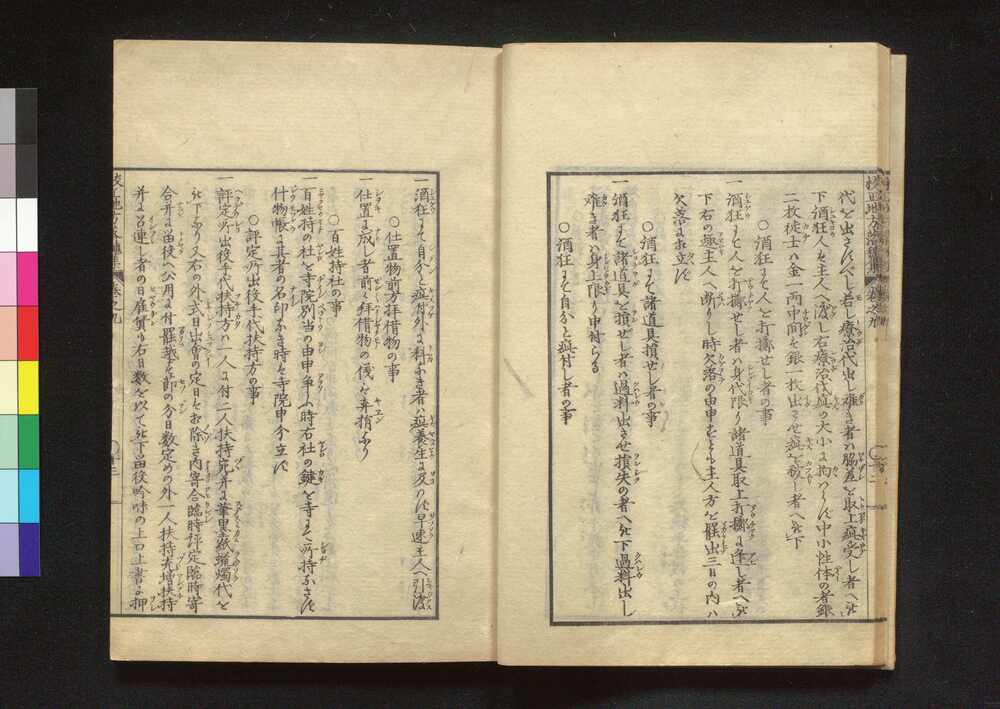 代を出さすべし若し療治代出し難き者ハ脇差を取上疵受し者へ被
下酒狂人を主人へ渡し右療治代疵の大小に拘ハらず中小性体の者銀
二枚徒士ハ金一両中間ハ銀一枚出させ疵を被し者へ被下
○酒狂にて人を打擲せし者の事
一酒狂にて人を打擲せし者ハ身代限り諸道具取上打擲に逢し者へ被
下右の趣主人へ断りし時欠落の由申すとも主人方を罷出三日の内ハ
欠落に不立
○酒狂にて諸道具損せし者の事
一酒狂にて諸道具を損せし者ハ過料出させ損失の者へ被下過料出し
難き者ハ身上限り申付らる
○酒狂にて自分と疵付し者の事
一酒狂にて自分と疵付外に科なき者ハ疵養生に及バず早速主人へ引渡
○仕置物前方拝借物の事
一仕置に成し者前に拝借物の儀を弃捐なり
○百姓持社の事
一百姓持の社を寺院別当の由申争ふ時右社の鍵を寺にて所持なさず
什物帳に其者の名印なき時ハ寺院申分立ず
○評定所出役手代扶持方の事
一評定所出役手代扶持方ハ一人に付二人扶持宛并に筆墨紙蝋燭代を
被下なり又右の外式日出会の定日をバ除き内寄合臨時評定臨時寄
合并に留役へ公用に付罷越す節の分日数定めの外一人扶持宛増扶持
并に召連し者の日雇賃も右日数を以て被下留役吟味の上口上書に押
巻之九